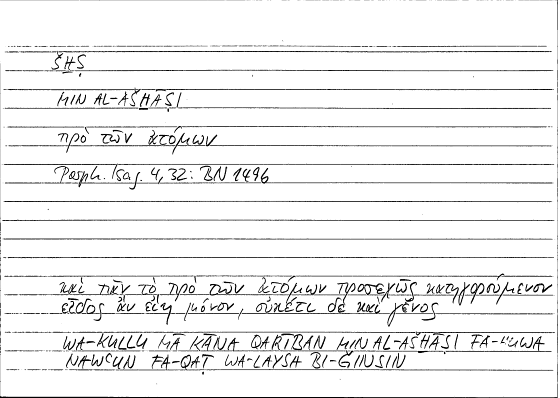 ŠḪṢ
MIN AL-AŠḪĀṢI
πρὸ τῶν ἀτόμων
Porph. Isag. 4, 32: BN 1496
καὶ πᾶν τὸ πρὸ τῶν ἀτόμων προσεχῶς κατηγορούμενον
εἶδος ἂν εἴη μόνον, οὐκέτι δὲ καὶ γένος
WA-KULLU MĀ KĀNA QARĪBAN MIN AL-AŠḪĀṢI FA-HUWA
NAWʿUN FA-QAṬ WA-LAYSA BI-ĞINSIN